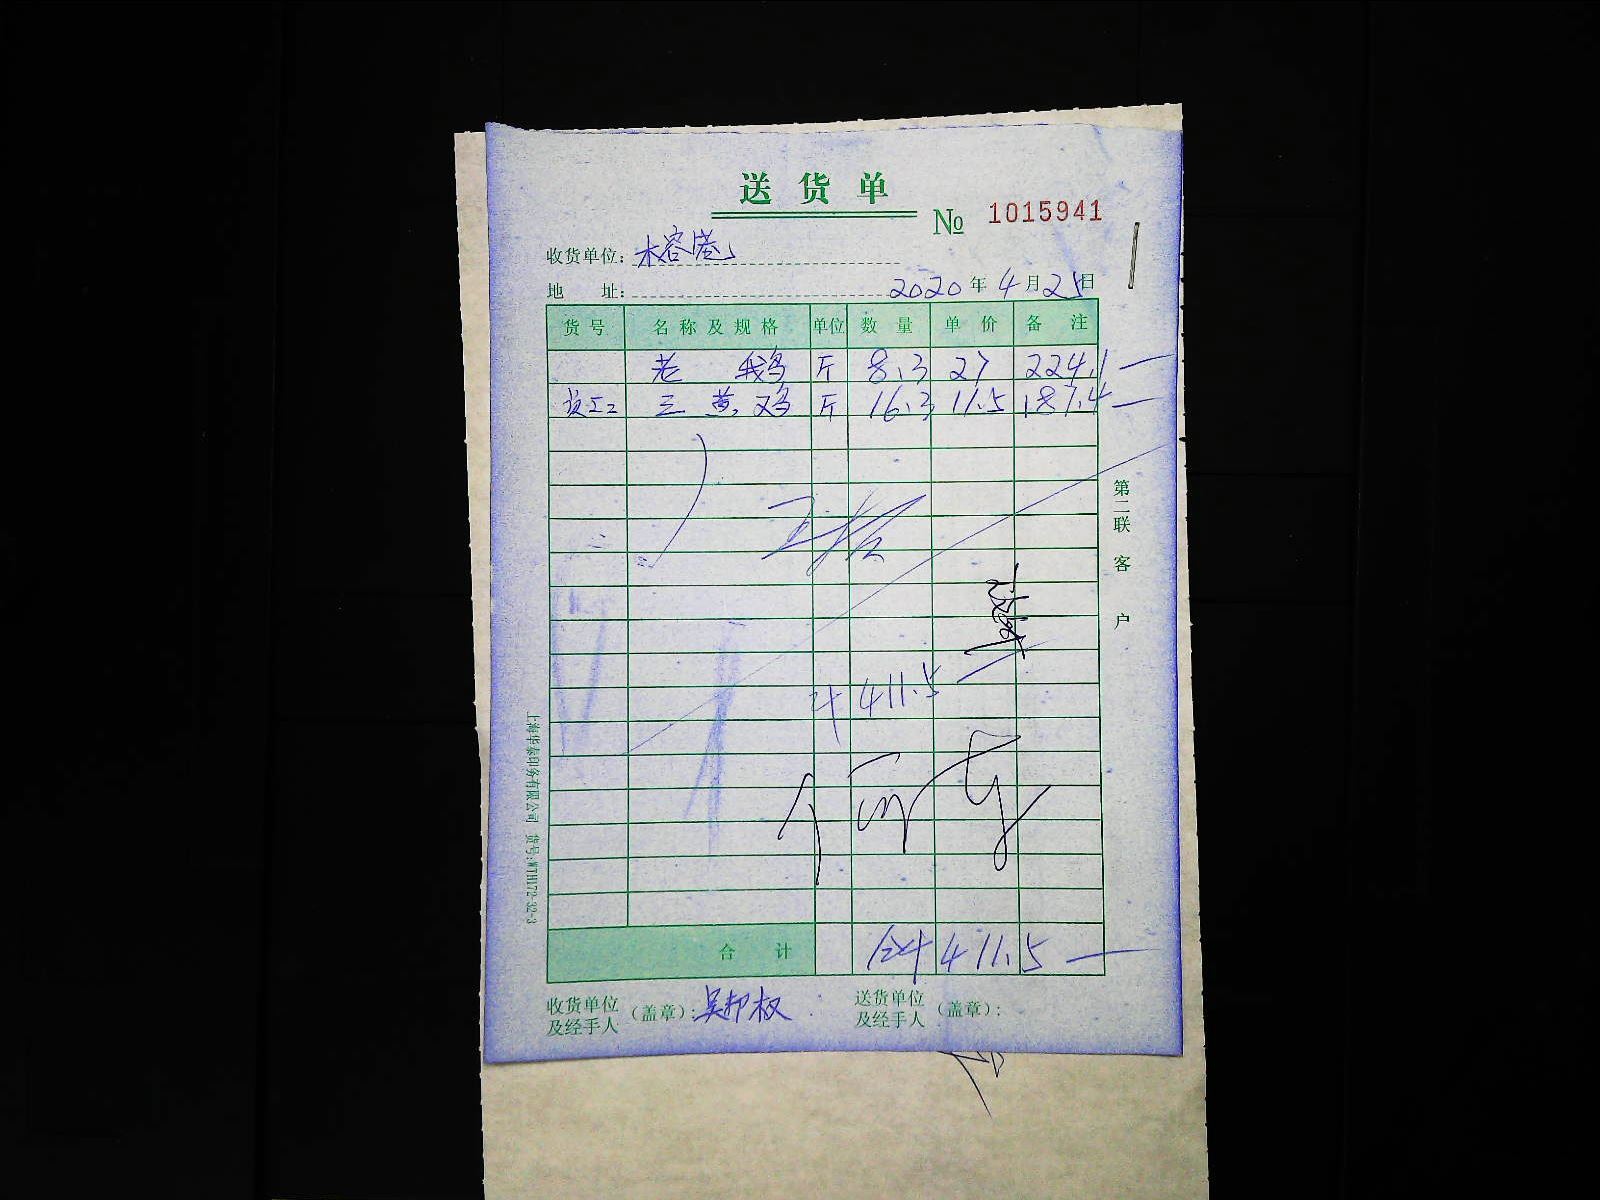 送货单
№ 1015941
收货单位：木容庵
地 址： 2020年4月25日
货号 名称及规格 单位 数量 单价 备注
老鹅 斤 8.3 27 224.1
员工 三黄鸡 斤 16.3 11.5 187.4
第二联 客户
计 411.5
上海华泰印务有限公司 货号:WTH172-32-3
合计 411.5
收货单位及经手人（盖章）：吴邦权 送货单位及经手人（盖章）：